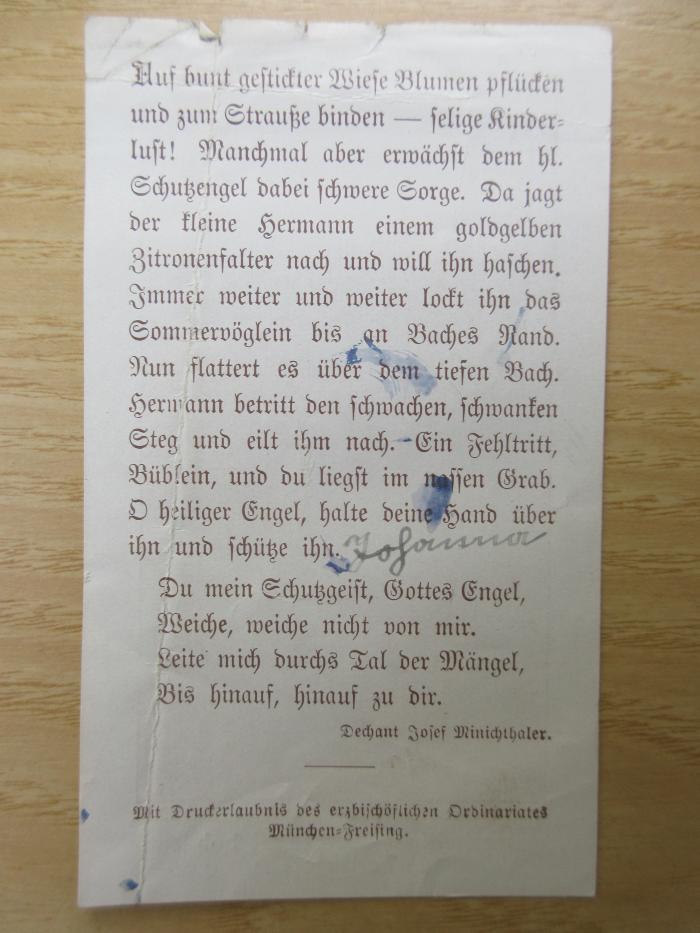 Auf bunt gestickter Wiese Blumen pflücken
und zum Strauße binden — selige Kinder=
lust! Manchmal aber erwächst dem hl.
Schutzengel dabei schwere Sorge. Da jagt
der kleine Hermann einem goldgelben
Zitronenfalter nach und will ihn haschen.
Immer weiter und weiter lockt ihn das
Sommervöglein bis an Baches Rand.
Nun flattert es über dem tiefen Bach.
Hermann betritt den schwachen, schwanken
Steg und eilt ihm nach. Ein Fehltritt,
Büblein, und du liegst im nassen Grab.
O heiliger Engel, halte deine Hand über
ihn und schütze ihn. Johanna
Du mein Schutzgeist, Gottes Engel,
Weiche, weiche nicht von mir.
Leite mich durchs Tal der Mängel,
Bis hinauf, hinauf zu dir.
Dechant Josef Minichthaler.
Mit Druckerlaubnis des erzbischöflichen Ordinariates
München=Freising.